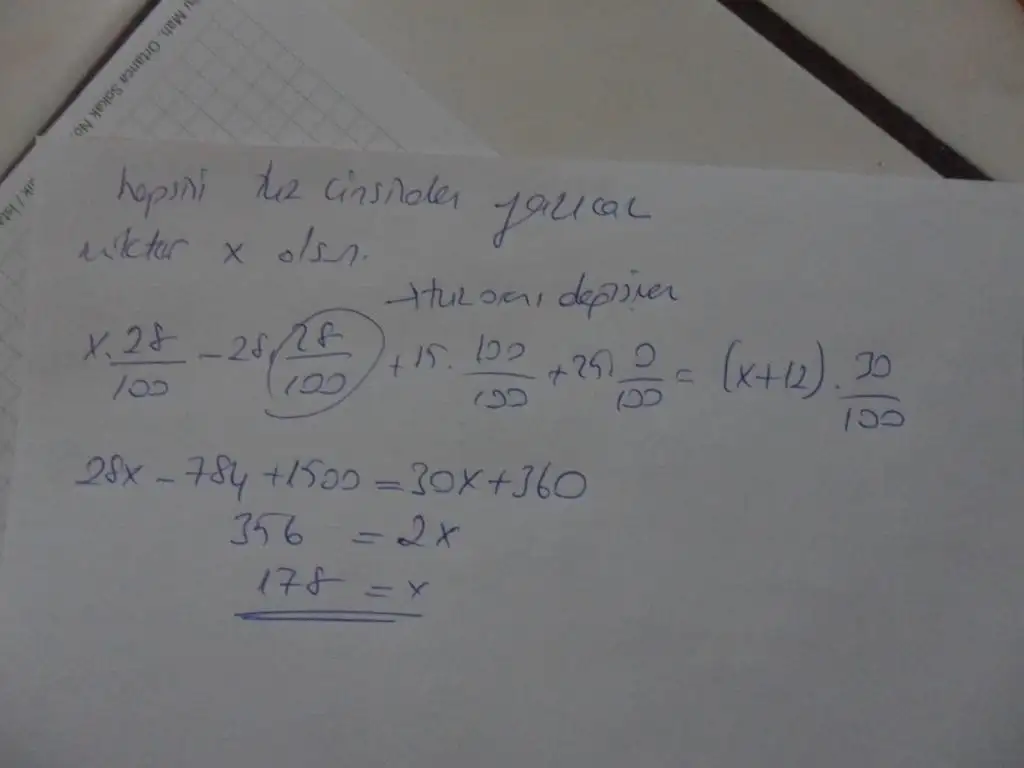 u Mah. Ortanca Sokak No
hepsini tuz cinsinden yazıcaz
miktar x olsun.
→ tuz oranı değişmez
x. 28/100 - 28. 28/100 + 15. 100/100 + 25. 0/100 = (x+12). 30/100
28x - 784 + 1500 = 30x + 360
356 = 2x
178 = x